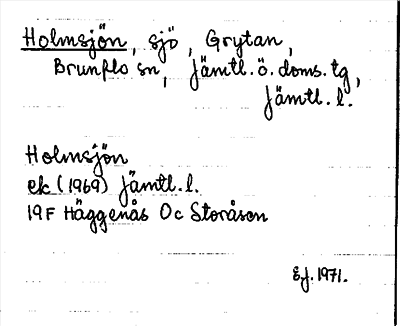 Holmsjön, sjö, Grytan,
Brunflo sn, Jämtl. ö. doms. tg,
Jämtl. l.
Holmsjön
ek (1969) Jämtl. l.
19F Häggenås Oc Storåsen
E.J. 1971.